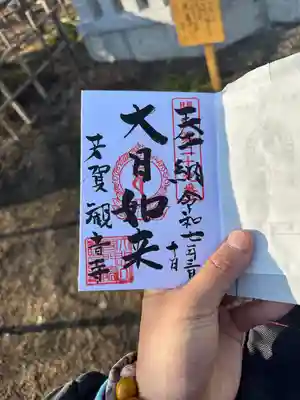 奉納令和七年三月
十日
大日如来
芳賀觀音寺